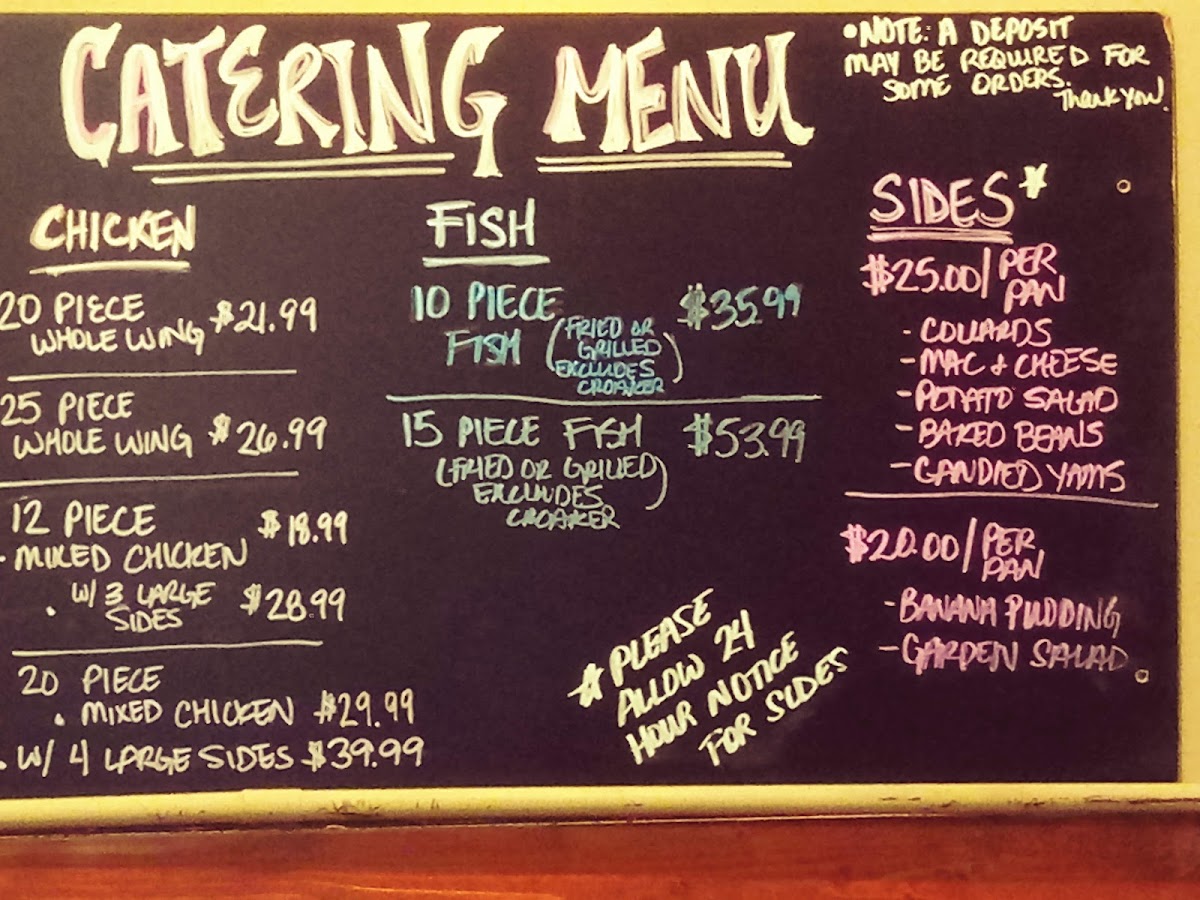 CATERING MENU
•NOTE: A DEPOSIT
MAY BE REQUIRED FOR
SOME ORDERS.
Thank you!
CHICKEN
20 PIECE
WHOLE WING $21.99
25 PIECE
WHOLE WING $26.99
12 PIECE
- MIXED CHICKEN $18.99
• W/ 3 LARGE
SIDES $28.99
20 PIECE
• MIXED CHICKEN $29.99
• W/ 4 LARGE SIDES $39.99
FISH
10 PIECE $35.99
FISH (FRIED OR
GRILLED
EXCLUDES
CROAKER)
15 PIECE FISH $53.99
(FRIED OR GRILLED)
EXCLUDES
CROAKER
* PLEASE
ALLOW 24
HOUR NOTICE
FOR SIDES
SIDES*
$25.00/PER
PAN
- COLLARDS
- MAC & CHEESE
- POTATO SALAD
- BAKED BEANS
- CANDIED YAMS
$20.00/PER
PAN
- BANANA PUDDING
- GARDEN SALAD